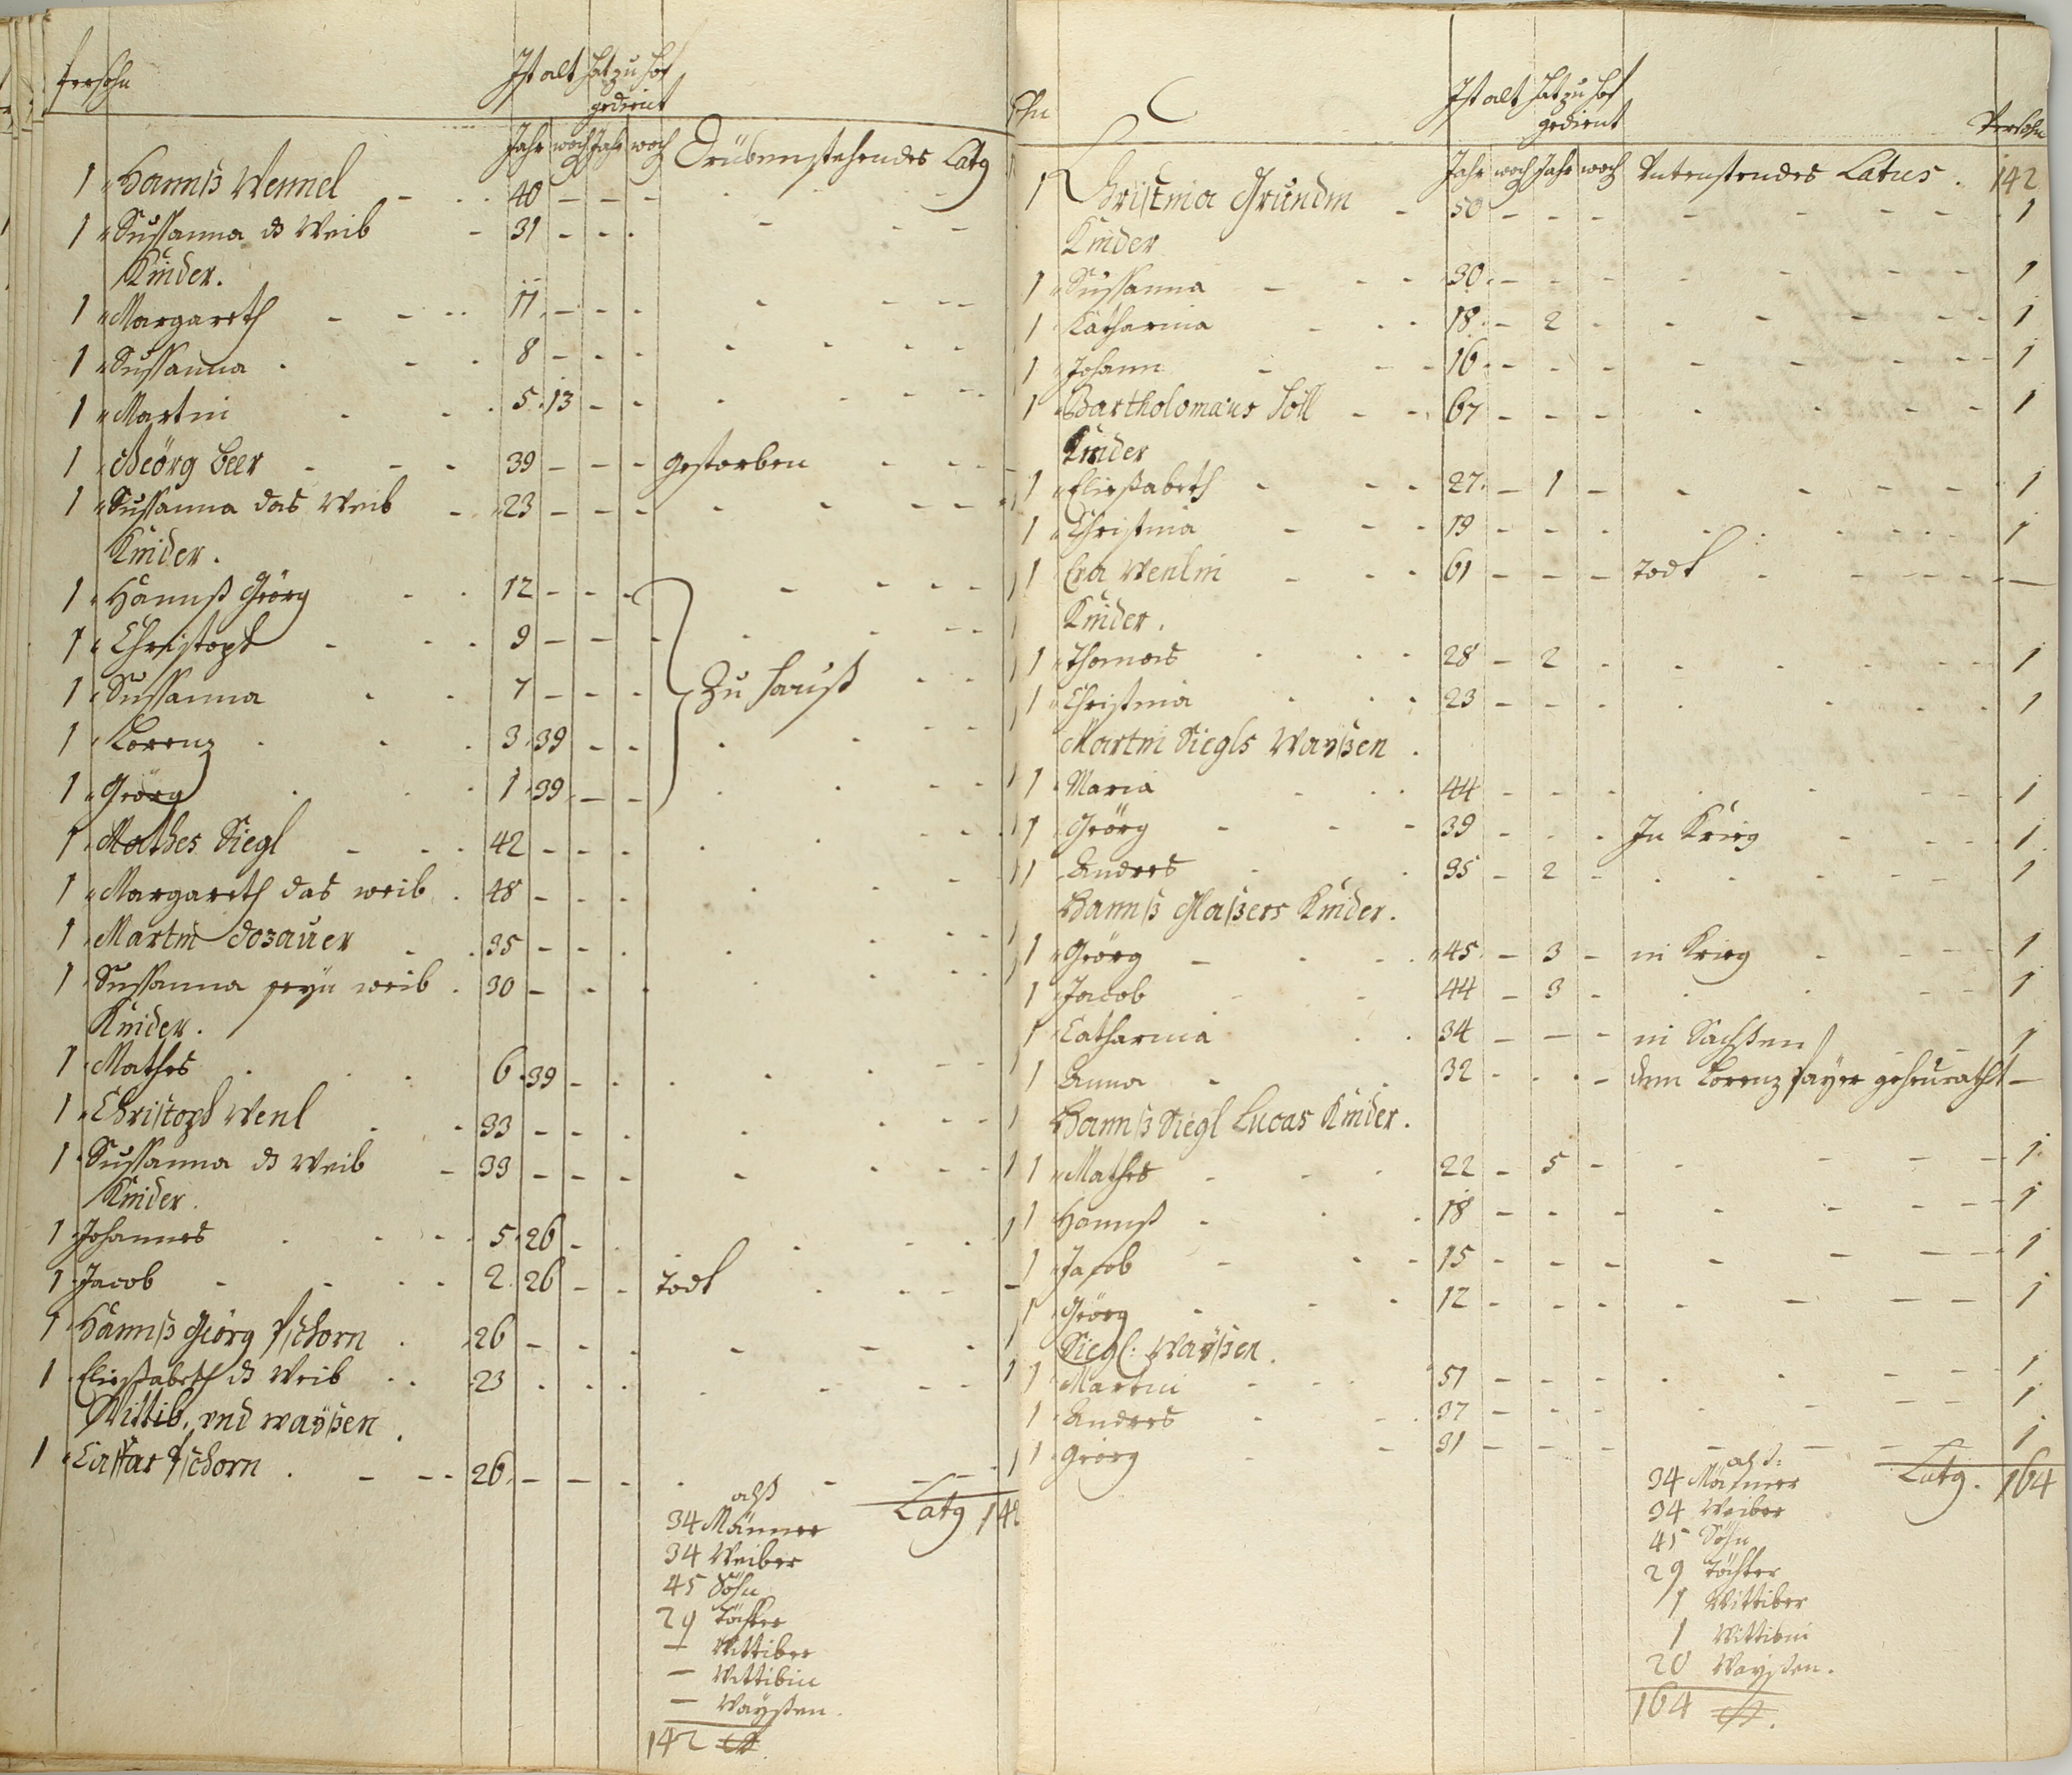 Persohn
Ist alt hat zu hof
gedient
Jahr woch Jahr woch Drübenstehendes Latg
1 Hannß Wennel 40 - - -
1 Sußanna ds Weib 31 - - -
Kinder.
1 Margareth 11 - - -
1 Sußanna 8 - - -
1 Martin 5 13 - -
1 Geörg Beer 39 - - - gestorben
1 Sußanna das Weib 23 - - -
Kinder.
1 Hannß Geörg 12 - - -
1 Christoph 9 - - -
1 Sußanna 7 - - - Zu Hauß
1 Lorenz 3 39 - -
1 Geörg 1 39 - -
1 Mathes Siegl 42 - - -
1 Margareth das weib 48 - - -
1 Martin Dozauer 35 - - -
1 Sußanna seyn weib 30 - - -
Kinder.
1 Mathes 6 39 - -
1 Christoph Wenl 33 - - -
1 Sußanna ds Weib 33 - - -
Kinder.
1 Johannes 5 26 - -
1 Jacob 2 26 - - todt -
1 Hannß Giörg Pschorn 26 - - - 1
1 Eließabeth ds Weib 23 - - - 1
Wittib. und waysen.
1 Caspar Pschorn 26 - - - 1
Latg 142
alß
34 Männer
34 Weiber
45 Söhn
29 Töchter
- Wittiber
- Wittibin
- Waysen.
142
Ist alt hat zu hof
gedient
Persohn
Jahr woch Jahr woch Latus. 142
1 Christina Grundin 50 - - - 1
Kinder
1 Sußanna 30 - - - 1
1 Katharina 18 - 2 - 1
1 Johann 16 - - - 1
1 Bartholomäus Söll 67 - - - 1
Kinder
1 Eließabeth 27 - 1 - 1
1 Christina 19 - - - 1
1 Eva Wenlin 61 - - - todt -
Kinder.
1 Thomas 28 - 2 - 1
1 Christina 23 - - - 1
Martin Siegls Wayßen.
1 Maria 44 - - - 1
1 Geörg 39 - - - In Krieg 1
1 Anders 35 - 2 - 1
Hannß Glaßers Kinder.
1 Geörg 45 - 3 - in Krieg 1
1 Jacob 44 - 3 - 1
1 Catharina 34 - - - in Sachßen 1
1 Anna 32 - - - dem Lorenz Payer geheurath -
Hannß Siegl Lucas Kinder.
1 Mathes 22 - 5 - 1
1 Hannß 18 - - - 1
1 Jacob 15 - - - 1
1 Geörg 12 - - - 1
Siegl: Wayßen.
1 Martin 51 - - - 1
1 Anders 37 - - - 1
1 Geörg 31 - - - 1
Latg. 164
alß:
34 Männer
34 Weiber
45 Söhn
29 Töchter
1 Wittiber
1 Wittibin
20 Waysen.
164